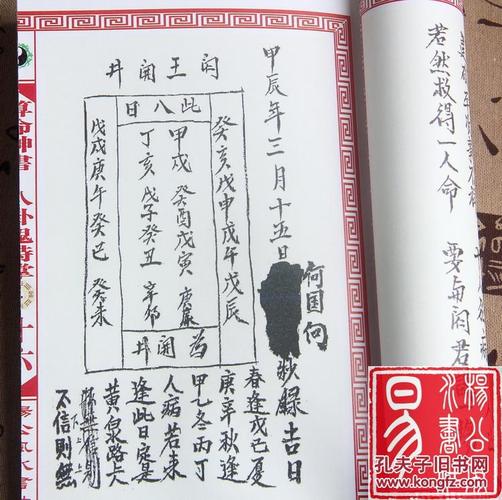 闫王開井
甲辰年三月十五日
何国向
抄録吉日
此八日
癸亥戊申戊午戊辰
甲戌 癸酉戊寅 庚
丁亥 戊子癸丑 辛卯
戊戌庚午癸巳 癸未
为開井
春逢戊己夏
庚辛秋逢
甲乙冬丙丁
人病若来
逢此日定是
黄泉路上
信則
不信則無
若然救得一人命
要与闫君
算命神書 八卦
十六
易
孔夫子旧书网